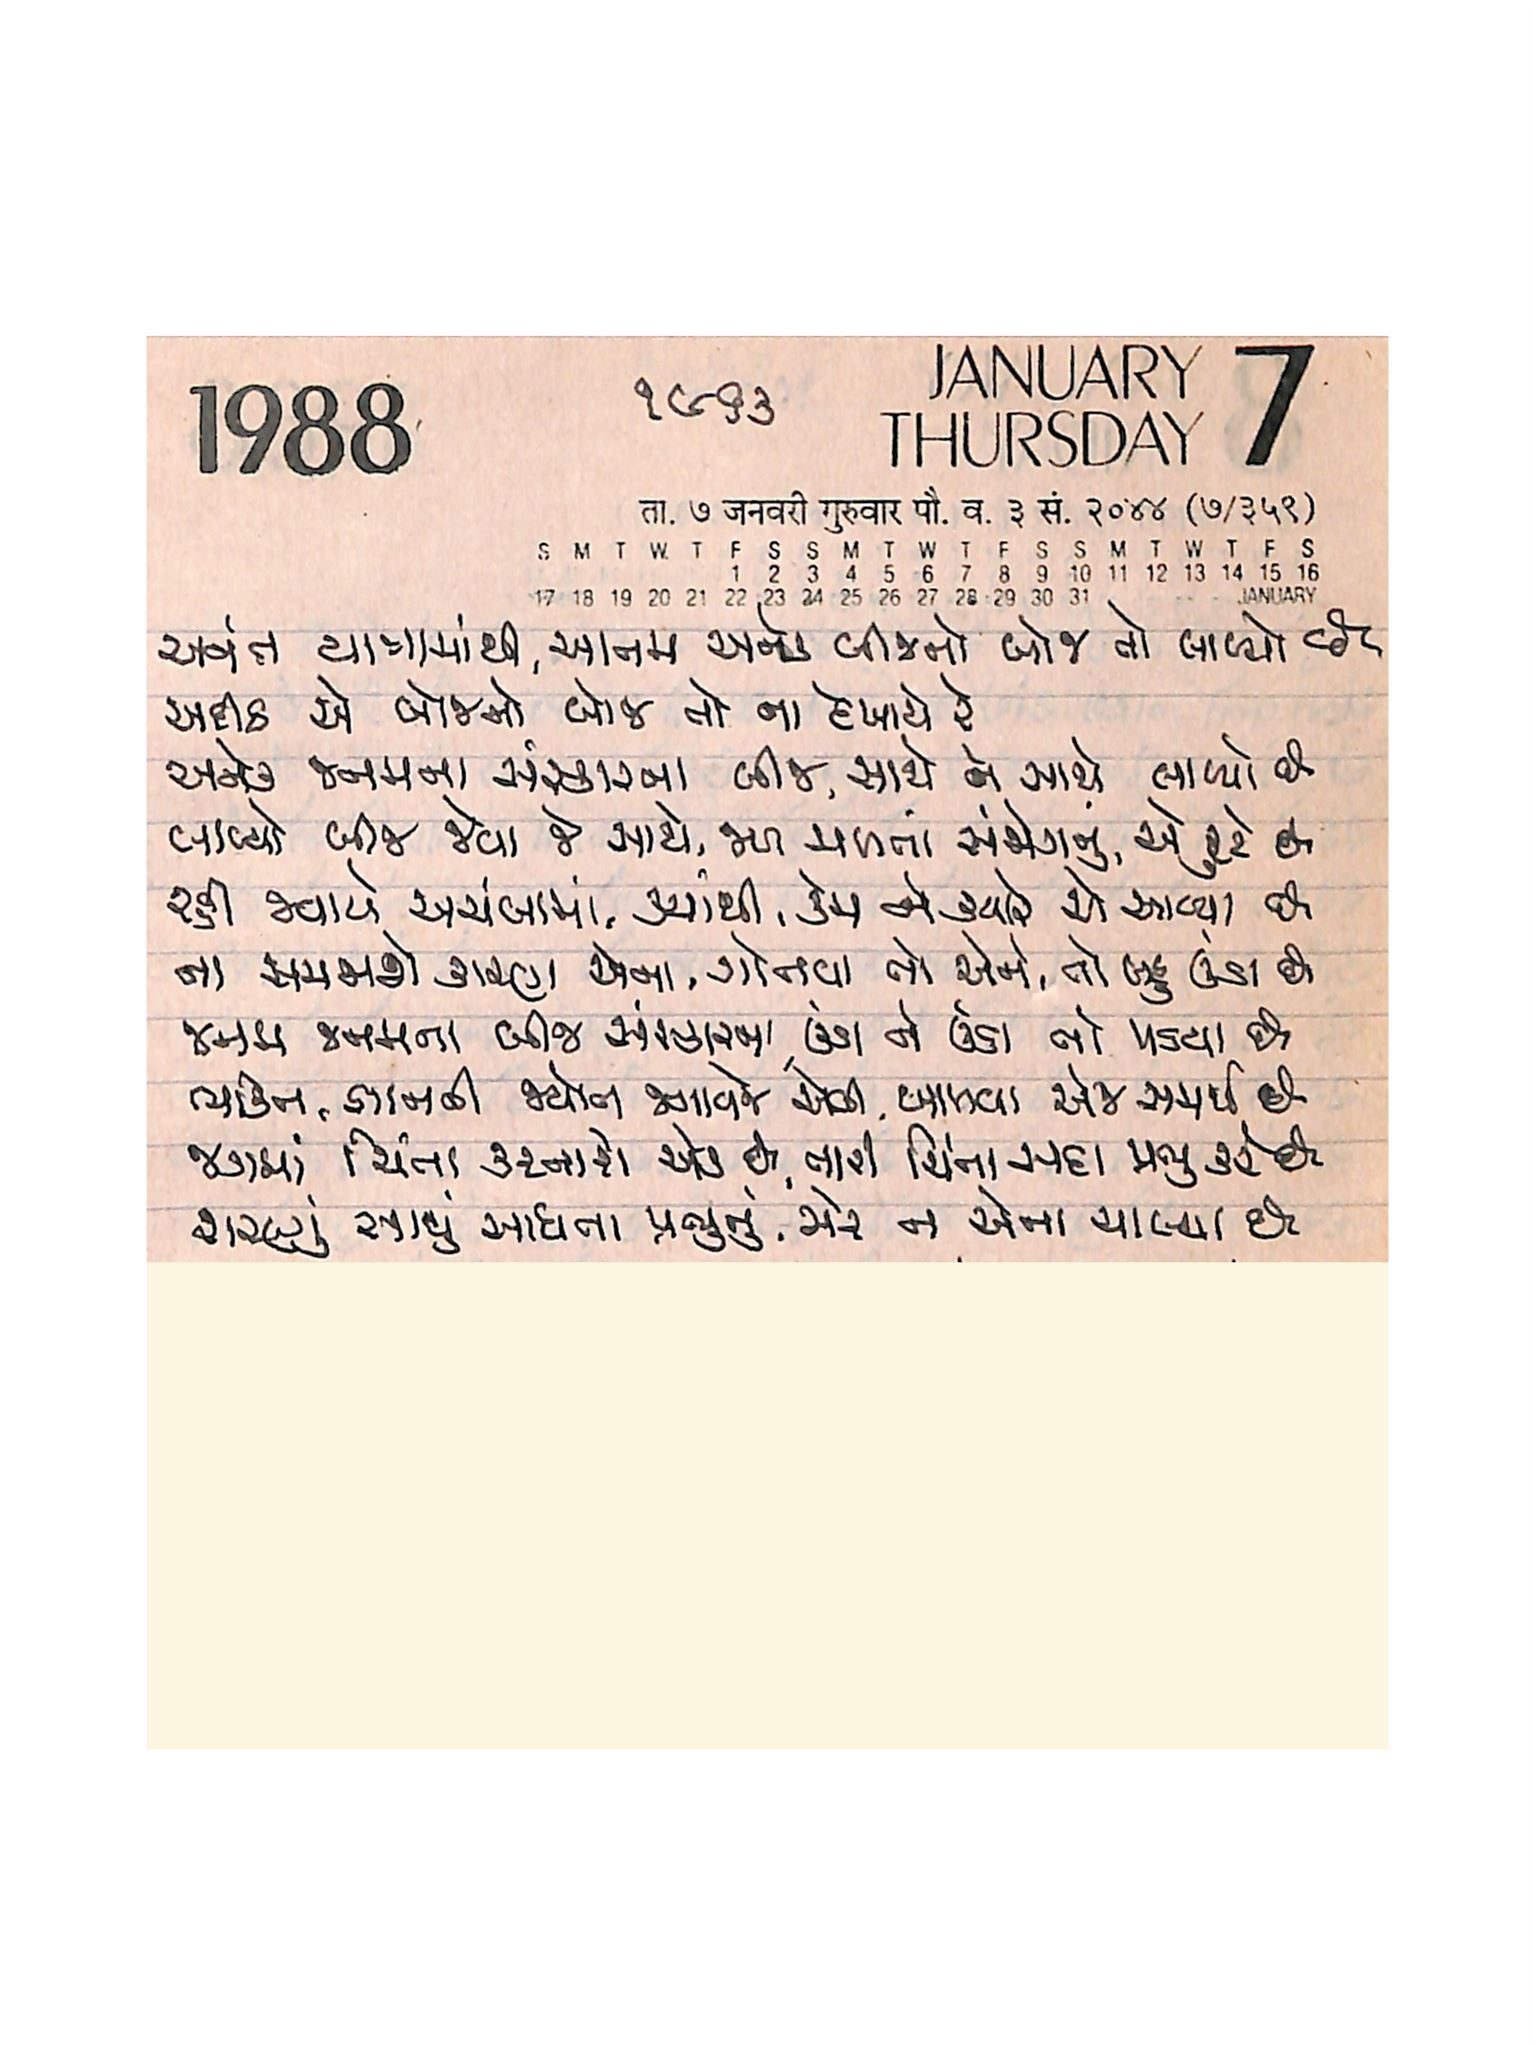 1988
૧૯૧૩
JANUARY 7
THURSDAY
ता. ७ जनवरी गुरुवार पौ. व. ३ सं. २०४४ (७/३५९)
S M T W T F S S M T W T F S S M T W T F S
1 2 3 4 5 6 7 8 9 10 11 12 13 14 15 16
17 18 19 20 21 22 23 24 25 26 27 28 29 30 31 JANUARY
અનંત યાત્રામાંથી, આતમ અનેક બીજનો બોજ તો લાવ્યો છે
અદીઠ એ બોજનો બોજ તો ના દેખાયે રે
અનેક જનમના સંસ્કારના બીજ, સાથે ને સાથે લાવ્યો છે
લાવ્યો બીજ જેવા જે સાથે, જળ મળતાં સંજોગનું, એ ફુટે છે
રહી જવાયે અચંબામાં, ક્યાંથી, કેમ ને ક્યારે એ આવ્યા છે
ના સમજાશે કારણ એના, ગોતવા તો એને, તો બહુ ઉંડા છે
જનમ જનમના બીજ સંસ્કારના, ઉંડા ને ઉંડા તો પડ્યા છે
ભક્તિને, જ્ઞાનની જ્યોત જલાવજે એવી, બાળવા એજ સમર્થ છે
જગમાં ચિંતા કરનારો એક છે, તારી ચિંતા સદા પ્રભુ કરે છે
શરણું સાધું સાધના પ્રભુનું, મેર ન એના ચાલ્યા છે